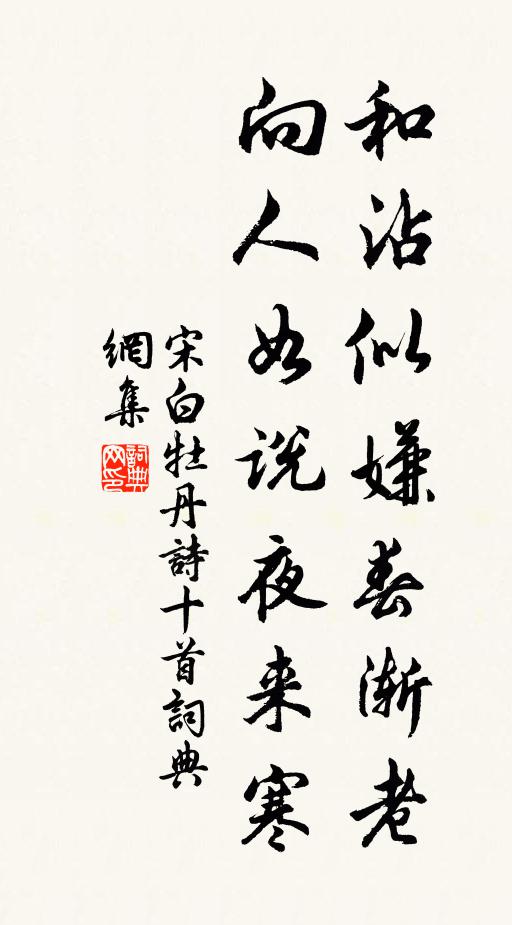 和沾似嫌春渐老
向人如说夜来寒
宋白牡丹詩十首詞典
網集
詞典
网印